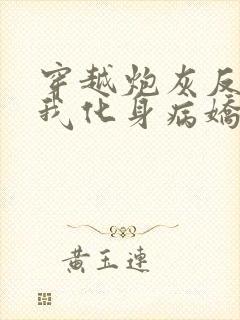 穿越炮灰反
我化身病嬌
黃玉連